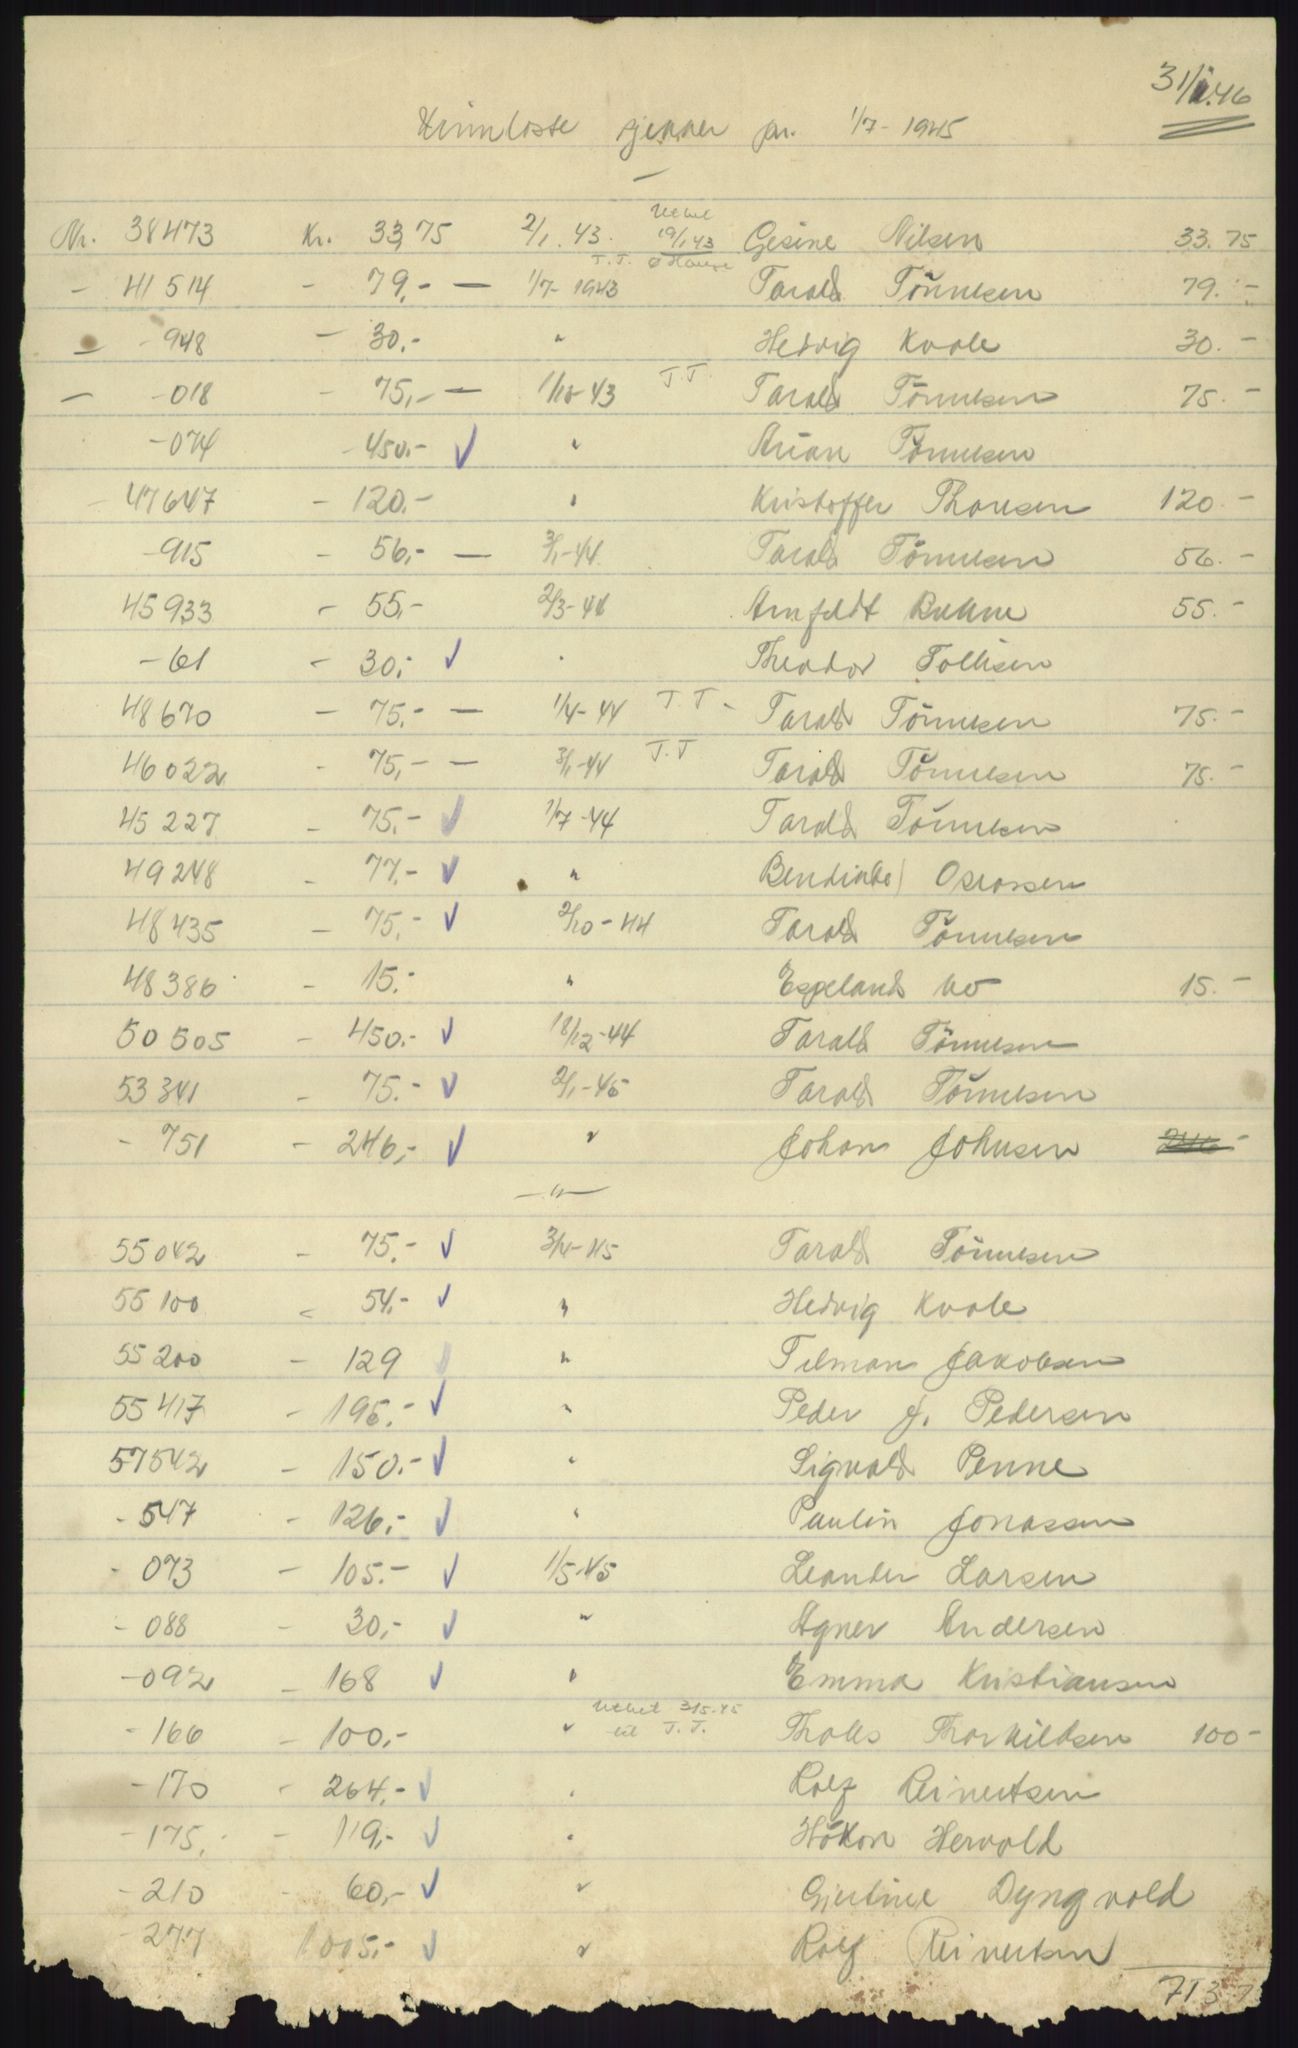 31/1.46
pr. 1/7-1945
Nr. 38473 Kr. 33,75 2/1.43. 19/1 43 Gesine Nilsen 33.75
- 41514 - 79,- — 1/7-1943 T.T. Tarald Tönnesen 79.-
- -948 - 30,- " Hedvig Kvale 30.-
- -018 - 75,- — 1/10-43 T.T. Tarald Tönnesen 75.-
-074 -450.- ✓ " Tönnesen
- 47647 - 120.- " Kristoffer Thorsen 120.-
-915 - 56,- — 3/1-44 Tarald Tönnesen 56.-
45933 - 55,- 2/3-44 Arnfeldt 55.-
-61 - 30,- ✓ " Theodor Tollisen
48670 - 75.- — 1/4-44 T.T- Tarald Tönnesen 75.-
46022 - 75,- — 3/1-44 T.T Tarald Tönnesen 75.-
45227 - 75.- ✓ 1/7-44 Tarald Tönnesen
49248 - 77.- ✓ " Oserossen
48435 - 75,- ✓ 2/10-44 Tarald Tönnesen
48386 - 15.- " Espeland 15.-
50505 - 450.- ✓ 18/12-44 Tarald Tönnesen
53341 - 75.- ✓ 2/1-45 Tarald Tönnesen
- 751 - 246,- ✓ " Johan Johnsen 246-
—"—
55042 - 75.- ✓ 3/4-45 Tarald Tönnesen
55100 - 54.- ✓ " Hedvig Kvale
55200 - 129 ✓ " Tilman Jakobsen
55417 - 196.- ✓ " Peder J. Pedersen
57542 - 150.- ✓ " Sigvald Penne
- 547 - 126,- ✓ " Paulin Jonassen
- 073 - 105.- ✓ 1/5-45 Leander Larsen
- 088 - 30,- ✓ " Agner Andersen
-092 - 168 ✓ " Emma Kristiansen
- 166 - 100,- " 31.5.45 til T.T. Tharkildsen 100-
-170 - 264,- ✓ " Rolf Reinertsen
-175, - 119,- ✓ " Håkon Hervold
-210 - 60,- ✓ " Gjertine Dyngvold
-277 1005,- ✓ " Rolf Reinertsen
713 7